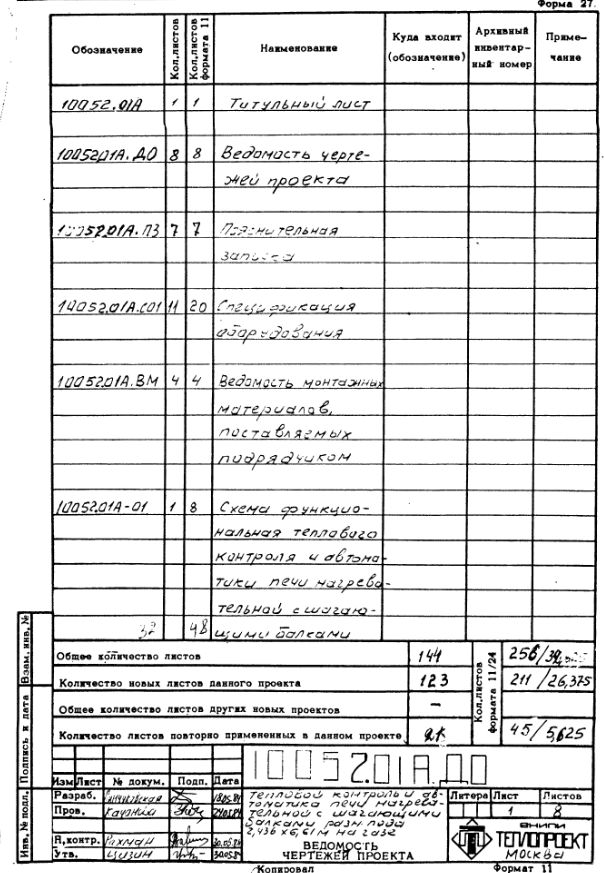 Форма 27.
Обозначение Кол.листов Кол.листов формата 11 Наименование Куда входит (обозначение) Архивный инвентарный номер Примечание
10052.01А 1 1 Титульный лист
10052.01А.Д0 8 8 Ведомость черте-
жей проекта
10052.01А.ПЗ 7 7 Пояснительная
записка
10052.01А.С01 11 20 Спецификация
оборудования
10052.01А.ВМ 4 4 Ведомость монтажных
материалов,
поставляемых
подрядчиком
10052.01А-01 1 8 Схема функцио-
нальная теплового
контроля и автома-
тики печи нагрева-
тельной с шагаю-
32 48 щими балками
Общее количество листов 144
Количество новых листов данного проекта 123
Общее количество листов других новых проектов –
Количество листов повторно примененных в данном проекте 21
Кол.листов формата 11/24
256/
211 / 26,375
45 / 5,625
Взам. инв. №
Подпись и дата
Инв. № подл.
10052.01А.Д0
Изм Лист № докум. Подп. Дата
Разраб. 18.05.81
Пров.
Н.контр. Рахман
Утв. Цизин
Тепловой контроль и ав-
томатика печи нагрева-
тельной с шагающими
балками разм. пода
2,436 х 6,61 м на газе
ВЕДОМОСТЬ
ЧЕРТЕЖЕЙ ПРОЕКТА
Литера Лист Листов
1 8
ВНИПИ
ТЕПЛОПРОЕКТ
Москва
Копировал Формат 11